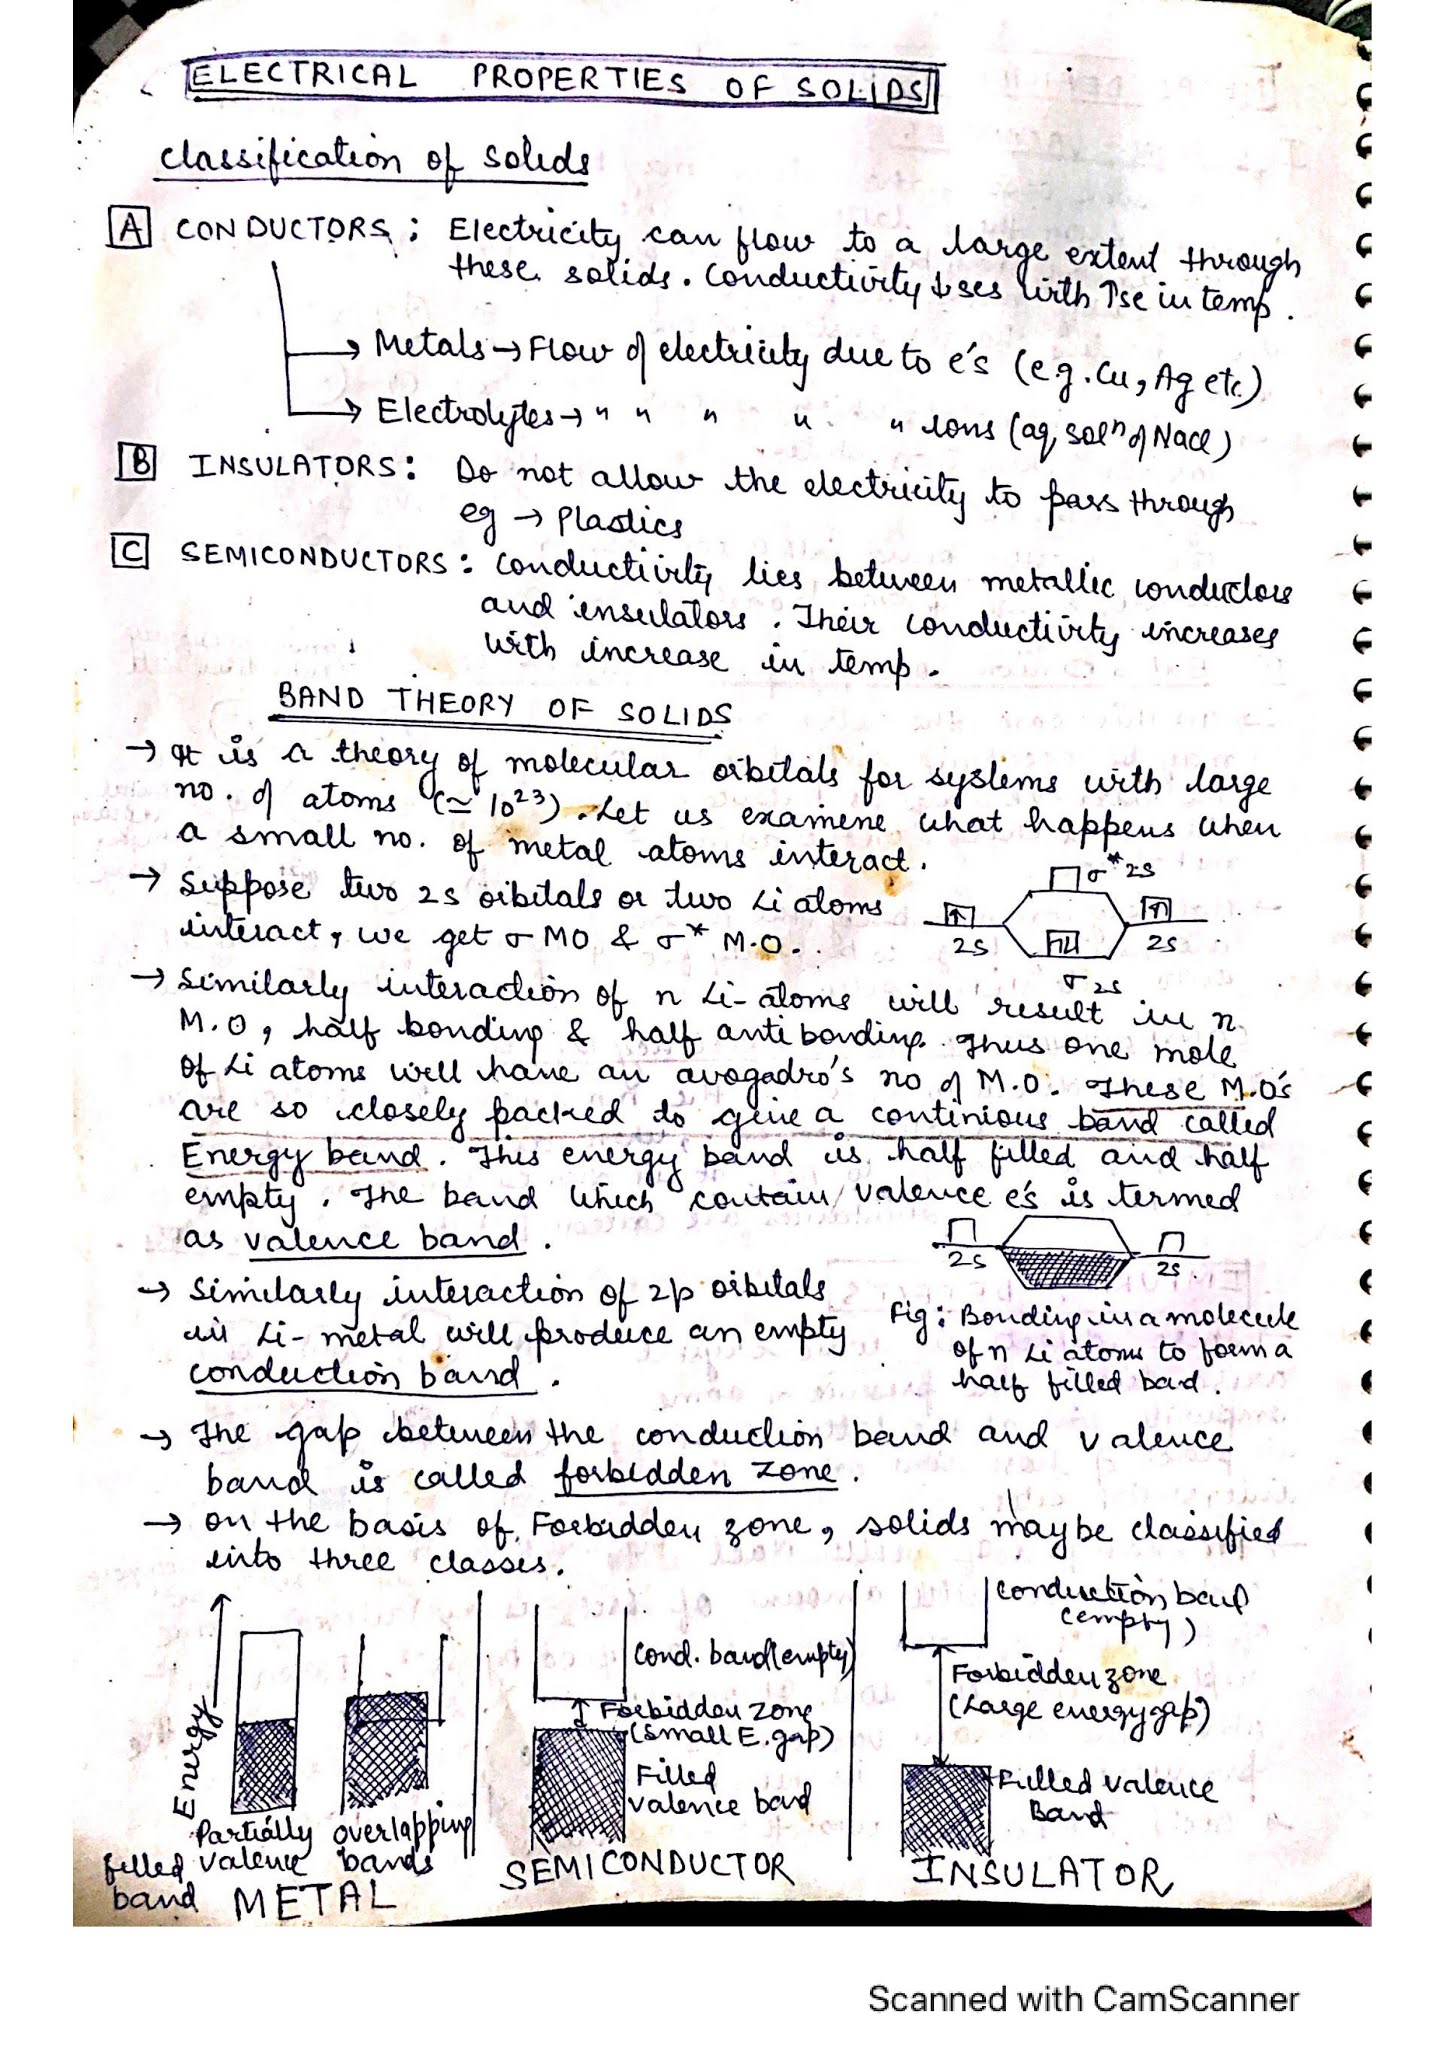 ELECTRICAL PROPERTIES OF SOLIDS
Classification of solids
A CONDUCTORS : Electricity can flow to a large extent through
these solids. Conductivity ↓ses with ↑se in temp.
→ Metals → Flow of electricity due to e's (e.g. Cu, Ag etc.)
→ Electrolytes → " " " " " ions (aq. solⁿ of NaCl)
B INSULATORS : Do not allow the electricity to pass through
eg → Plastics
C SEMICONDUCTORS : Conductivity lies between metallic conductors
and insulators. Their conductivity increases
with increase in temp.
BAND THEORY OF SOLIDS
→ It is a theory of molecular orbitals for systems with large
no. of atoms (≃ 10²³). Let us examine what happens when
a small no. of metal atoms interact.
→ Suppose two 2s orbitals or two Li atoms
interact, we get σ MO & σ* M.O.
σ* 2s
2s 2s
σ 2s
→ Similarly interaction of n Li-atoms will result in n
M.O, half bonding & half antibonding. Thus one mole
of Li atoms will have an avogadro's no of M.O. These M.O's
are so closely packed to give a continious band called
Energy band. This energy band is half filled and half
empty. The band which contain valence e's is termed
as valence band.
2s 2s
Fig : Bonding in a molecule
of n Li atoms to form a
half filled bad.
→ Similarly interaction of 2p orbitals
in Li-metal will produce an empty
conduction band.
→ The gap between the conduction band and valence
band is called forbidden zone.
→ on the basis of Forbidden zone, solids may be classified
into three classes.
Energy
Partially
filled valence
band
overlapping
bands
METAL
Cond. band (empty)
Forbidden zone
(Small E. gap)
Filled
valence band
SEMICONDUCTOR
Conduction band
(empty)
Forbidden zone
(Large energy gap)
Filled valence
Band
INSULATOR
Scanned with CamScanner